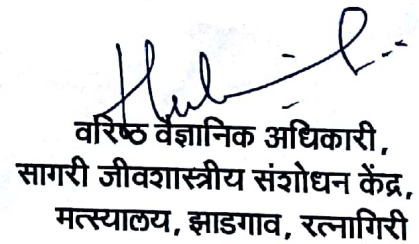 वरिष्ठ वैज्ञानिक अधिकारी,
सागरी जीवशास्त्रीय संशोधन केंद्र,
मत्स्यालय, झाडगाव, रत्नागिरी